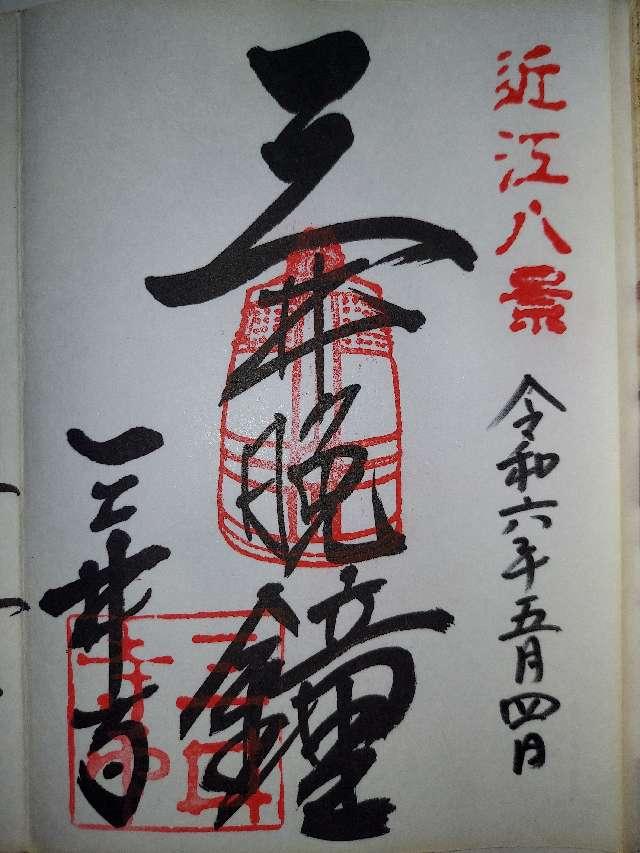 近江八景
令和六年五月四日
三井晩鐘
三井寺